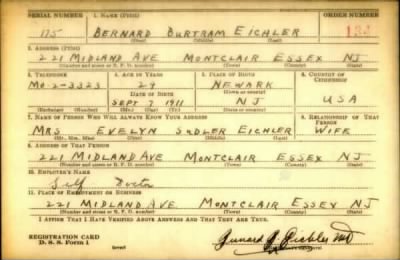 SERIAL NUMBER 1. NAME (Print) ORDER NUMBER
175 BERNARD BURTRAM EICHLER
(First) (Middle) (Last)
2. ADDRESS (Print)
221 MIDLAND AVE MONTCLAIR ESSEX NJ
(Number and street or R. F. D. number) (Town) (County) (State)
3. TELEPHONE 4. AGE IN YEARS 5. PLACE OF BIRTH 6. COUNTRY OF CITIZENSHIP
Mo-2-3323 29 NEWARK
DATE OF BIRTH (Town or county)
SEPT 7 1911 NJ USA
(Exchange) (Number) (Mo.) (Day) (Yr.) (State or country)
7. NAME OF PERSON WHO WILL ALWAYS KNOW YOUR ADDRESS 8. RELATIONSHIP OF THAT PERSON
MRS EVELYN SADLER EICHLER WIFE
(Mr., Mrs., Miss) (First) (Middle) (Last)
9. ADDRESS OF THAT PERSON
221 MIDLAND AVE MONTCLAIR ESSEX NJ
(Number and street or R. F. D. number) (Town) (County) (State)
10. EMPLOYER'S NAME
Self Doctor
11. PLACE OF EMPLOYMENT OR BUSINESS
221 MIDLAND AVE MONTCLAIR ESSEX NJ
(Number and street or R. F. D. number) (Town) (County) (State)
I AFFIRM THAT I HAVE VERIFIED ABOVE ANSWERS AND THAT THEY ARE TRUE.
REGISTRATION CARD
D. S. S. Form 1 (over) Eichler MD